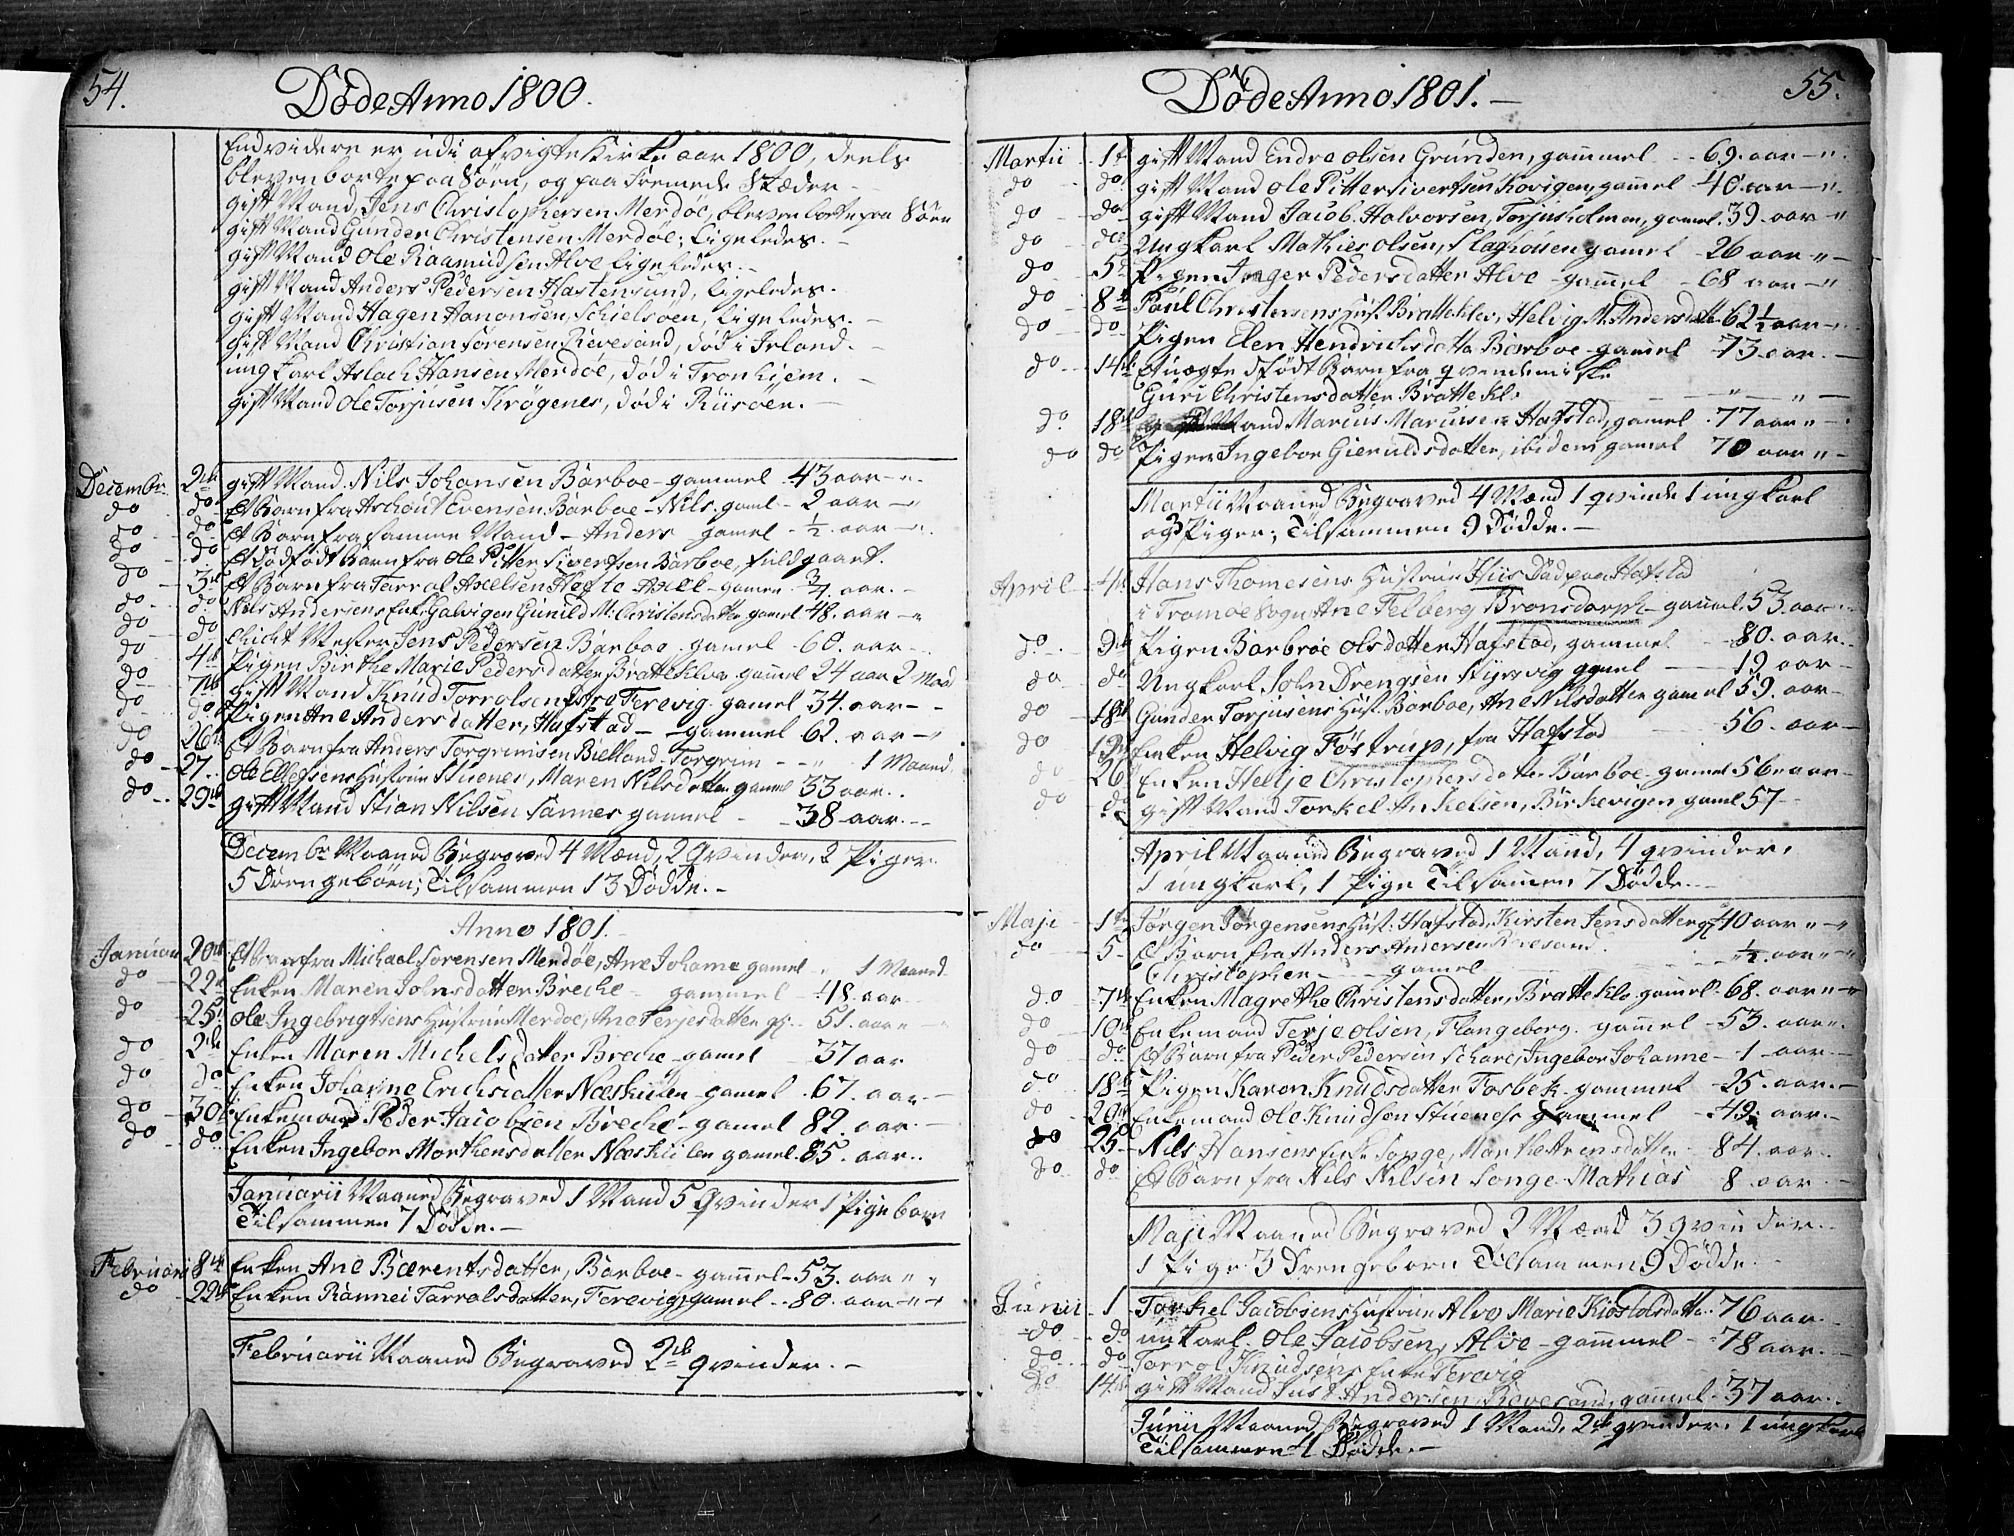 54.
Døde Anno 1800.
Endvidere er udi afvigte Kirke aar 1800, deels
bleven borte paa Søen, og paa Fremede Stæder
gift Mand, Jens Christophersen Merdøe, bleven borte paa Søen
gift Mand Gunder Christensen Merdøe; ligeledes.
gift Mand Ole Raamudsen Alve ligeledes.
gift Mand Anders Pedersen Hastensund, ligeledes.
gift Mand Hagen Hanonsen, Schielsøen, ligeledes.
gift Mand Christian Sørensen Revesand, død i Irland.
ungkarl Aslach Hansen Merdøe, død i Tronhiem.
gift Mand Ole Torjusen Krøgenes, død i Riisøer.
Decembr. 2de gift Mand Nils Johansen Barboe gammel 43 aar
do do Et Barn fra Aschout Evensen Barboe Nils gaml 2 aar
do do Et Barn fra samme Mand Anders gamel ½ aar
do do Et dødfødt Barn fra Ole Pitter Sivertsen Barboe, fuldgaaet.
do 3de Et Barn fra Tarral Axelsen Axell gamen ¾ aar.
do do Nils Andersens Enke Galvigen Gunild M. Christensdatter gamel 48. aar
do do Mester Jens Pedersen Barboe gamel 60. aar
do 4de Pigen Birthe Marie Pedersdatter Bratteklev gammel 24 aar 2 Maad
do 7de gift Mand Knud Torrolsen Færevig gamel 34. aar
do do Pigen Ane Andersdatter, Hafstad gammel 62. aar
do 26de Et Barn fra Anders Torgrimsen Bieland Torgrim 1 Maaned
do 27. Ole Ellefsens Hustrue Stuenes, Maren Nilsdatter gamel 33 aar
do 29de gift Mand Stian Nilsen Sannes gammel 38 aar
Decembr Maaned Begraved 4 Mænd, 2 Qvinder, 2 Piger
5 Drengebørn; Tilsammen 13 Dødde.
Anno 1801.
Januari 20de Et Barn fra Michael Sørensen Merdøe, Ane Johanne gamel 1 Maaned
do 22de Enken Maren Johnsdatter Breche gammel 48. aar
do 25de Ole Ingebrigtsens Hustrue Merdøe, Ane Terjesdatter gl. 51. aar
do Enken Maren Michelsdatter Breche gamel 37 aar
do do Enken Johanne Erichsdatter Næskilen gamel 67. aar
do 30te Enkemand Peder Jacobsen Breche gamel 82. aar
do do Enken Ingebor Morthensdatter Næskilen gamel 85. aar
Januarii Maaned Begraved 1 Mand 5 Qvinder 1 Pigebarn
Tilsammen 7 Dødde.
Februari 8de Enken Ane Bærentsdatter, Barboe gammel 53. aar
do 22de Enken Rannei Tarralsdatter, Færevig, gamel 80. aar
Februarii Maaned Begraved 2de qvinder.
55.
Døde Anno 1801.
Martii 1te gift Mand Endre Olsen Grunden, gammel 69. aar
do do gift Mand Ole Pitter Sivertsen Kovigen, gamel 40. aar
do do gift Mand Jacob Halvorsen, Torjusholmen, gamel 39. aar
do do Ungkarl Mathies Olsen, gamel 26 aar
do 5te Pigen Inger Pedersdatter Alve gammel 68 aar
do 8de Poul Christensens Hust Bratteklev, Helvig M. Andersdatt 62½ aar
do do Pigen Elen Hendrichsdatter Barboe gammel 73 aar
do 14de Et uægte dfødt Barn fra qvindemske
Guri Christensdatter Brattekl:
do 18de Mand Marcus Marcusen Hafstad, gamel 77 aar
do do Pigen Ingebor Gieruldsdatter, ibidem gamel 70 aar
Martii Maaned Begraved 4 Mænd 1 qvinde 1 ungkarl
og 3 Piger; Tilsammen 9 Dødde.
April 4de Hans Thomesens Hustrue Hiis Død paa Hafstad
i Tromøe Sogn Ane Felberg Bronsdorph gammel 53. aar
do 9de Pigen Barbroe Olsdatter Hafstad, gammel 80. aar
do do Ungkarl John Drengsen gamel 19 aar
do 18de Gunder Torjusens Hust. Barboe, Ane Nilsdatter gamel 59. aar
do 19de Enken Helvig Föstrup, fra Hafstad 56. aar
do 26 Enken Heltje Christophersdatter Barboe gamel 56 aar
do do gift Mand Torkel Ankelsen, Birkevigen gamel 57
April Maaned Begraved 1 Mand, 4 qvinder,
1 ungkarl, 1 Pige Tilsammen 7 Dødde.
Maji 1te Jørgen Jørgensens Hust: Hafstad, Kirsten Jensdatter gl 40 aar
do 5 Et Barn fra Anders Andersen Revesand
Christopher gamel ½ aar
do 7de Enken Magrethe Christensdatter, Bratteklev gamel 68. aar
do 10de Enkemand Terje Olsen, Flangeborg gammel 53. aar
do do Et Barn fra Peder Pedersen Schare, Ingebor Johanne 1 aar
do 18de Pigen Karen Knudsdatter Fosbek gammel 25. aar
do 20de Enkemand Ole Knudsen Stuenes gammel 49. aar
do 25de Nils Hansens Enke Songe, Marthe Arensdatter 84. aar
do do Et Barn fra Nils Nilsen Songe Mathias 8. aar
Maji Maaned Begraved 2 Mænd 3 qvinder
1 Pige 3 Drengebørn Tilsammen 9 Dødde.
Junii 1 Torkel Jacobsens Hustrue Alve Marie Kiøstolsdatter 76 aar
do do ungkarl Ole Jacobsen, Alve gammel 78 aar.
do do Tarrol Knudsens Enke Færevig
do 14de gift Mand Just Andersen, Revesand, gammel 37 aar
Junii Maaned Begraved 1 Mand, 2de qvinder, 1 ungkarl
Tilsammen 4 Dødde.